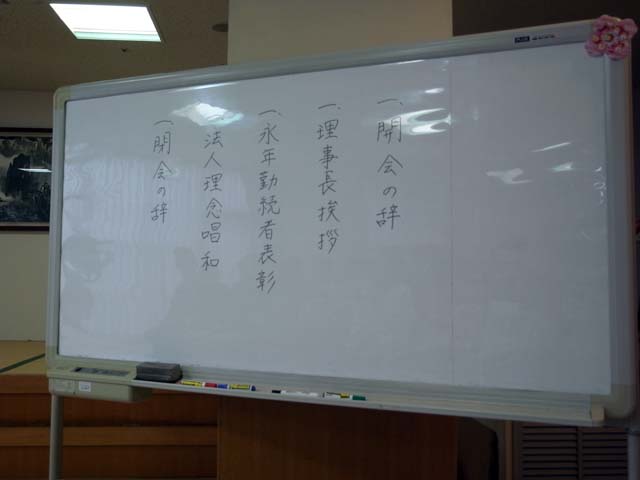 一、開会の辞
一、理事長挨拶
一、永年勤続者表彰
一、法人理念唱和
一、閉会の辞
PLUS